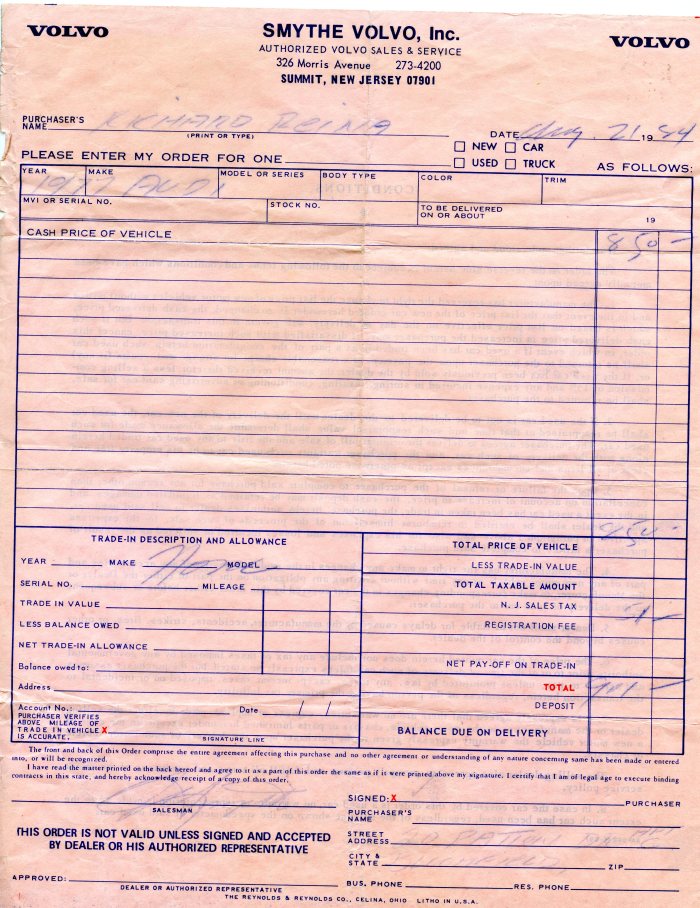 VOLVO
SMYTHE VOLVO, Inc.
VOLVO
AUTHORIZED VOLVO SALES & SERVICE
326 Morris Avenue 273-4200
SUMMIT, NEW JERSEY 07901
PURCHASER'S NAME RICHARD REINA
(PRINT OR TYPE)
DATE Aug. 21 1984
NEW CAR
PLEASE ENTER MY ORDER FOR ONE USED TRUCK AS FOLLOWS:
YEAR MAKE MODEL OR SERIES BODY TYPE COLOR TRIM
1977 AUDI
MVI OR SERIAL NO. STOCK NO. TO BE DELIVERED ON OR ABOUT 19
CASH PRICE OF VEHICLE 850 —
TRADE-IN DESCRIPTION AND ALLOWANCE
TOTAL PRICE OF VEHICLE 850 —
YEAR MAKE None MODEL
LESS TRADE-IN VALUE
SERIAL NO. MILEAGE
TOTAL TAXABLE AMOUNT
TRADE IN VALUE
N. J. SALES TAX 51 —
LESS BALANCE OWED
REGISTRATION FEE
NET TRADE-IN ALLOWANCE
NET PAY-OFF ON TRADE-IN
Balance owed to:
TOTAL 901 —
Address
DEPOSIT
Account No.: Date / /
PURCHASER VERIFIES
ABOVE MILEAGE OF
TRADE IN VEHICLE X
IS ACCURATE.
SIGNATURE LINE
BALANCE DUE ON DELIVERY
The front and back of this Order comprise the entire agreement affecting this purchase and no other agreement or understanding of any nature concerning same has been made or entered
into, or will be recognized.
I have read the matter printed on the back hereof and agree to it as a part of this order the same as if it were printed above my signature. I certify that I am of legal age to execute binding
contracts in this state, and hereby acknowledge receipt of a copy of this order.
SALESMAN
SIGNED: X PURCHASER
PURCHASER'S NAME
THIS ORDER IS NOT VALID UNLESS SIGNED AND ACCEPTED
BY DEALER OR HIS AUTHORIZED REPRESENTATIVE
STREET ADDRESS
CITY & STATE ZIP
APPROVED:
DEALER OR AUTHORIZED REPRESENTATIVE
BUS. PHONE RES. PHONE
THE REYNOLDS & REYNOLDS CO., CELINA, OHIO LITHO IN U.S.A.